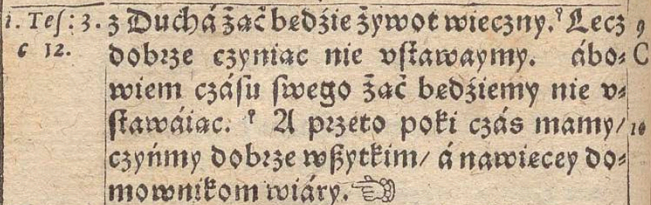 1. Tes: 3. z Duchá żąć bedźie żywot wieczny. Lecz 9
c 12. dobrze czyniac nie vstawaymy. ábo⸗ C
wiem czásu swego żąć bedźiemy nie v⸗
stawáiac. A przeto poki czás mamy/ 10
czyńmy dobrze wszytkim/ á nawiecey do⸗
mownikom wiáry. ☜